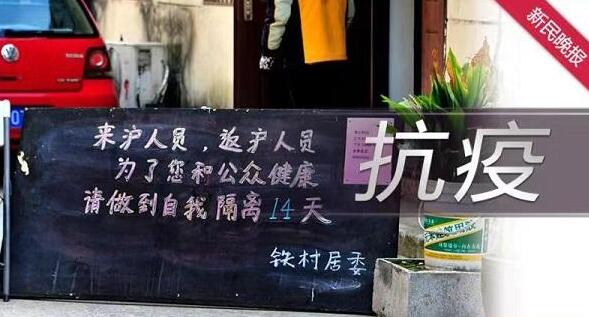 新民晚报
来沪人员，返沪人员
为了您和公众健康
请做到自我隔离14天
铁村居委
抗疫